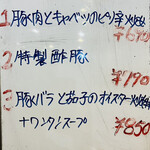 1 豚肉とキャベツのピリ辛炒め
¥690
2 特製酢豚
¥790
3 豚バラと茄子のオイスター炒め
+ワンタンスープ ¥850